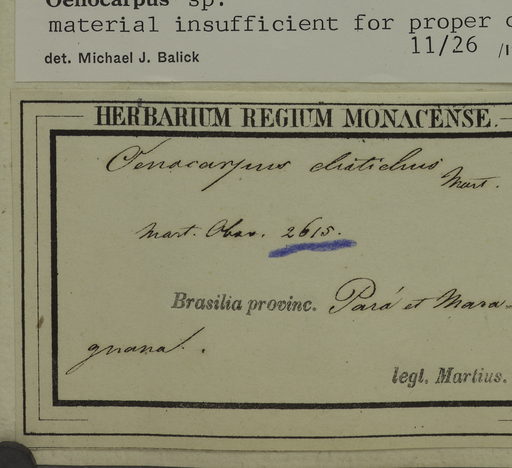 Oenocarpus sp.
material insufficient for proper
det. Michael J. Balick 11/26 /1
HERBARIUM REGIUM MONACENSE.
Oenocarpus distichus Mart.
Mart. Obs. 2615.
Brasilia provinc. Pará et Mara-
gnana.
legt. Martius.